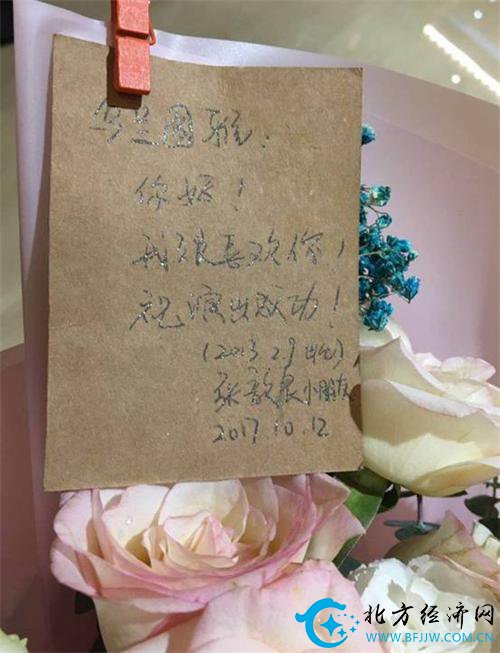 乌兰图雅：
你好！
我很喜欢你，
祝演出成功！
(2013.2.9出生)
张歆
小朋友
2017.10.12
北方经济网
WWW.BFJJW.COM.CN